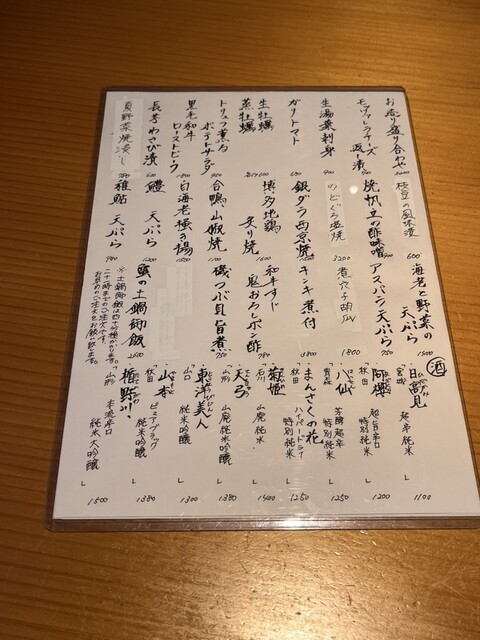 お造り盛り合わせ
モッツァレラチーズ
味噌漬
生湯葉刺身 900
ガリトマト 600
生牡蠣
蒸牡蠣
トリュフ薫る
ポテトサラダ
黒毛和牛
ローストビーフ
長芋わさび漬
夏野菜焼浸し
枝豆の風味漬 600
焼帆立の酢味噌
のどぐろ塩焼 3200
銀ダラ西京焼
博多地鶏
炙り焼
合鴨山椒焼
白海老極き揚
鱧 天ぷら
稚鮎 天ぷら 980
海老と野菜の
天ぷら 1500
アスパラ天ぷら 750
煮穴子 1800
キンキ煮付 3800
和牛すじ
鬼おろしポン酢 780
磯つぶ貝旨煮 750
鯛の土鍋御飯 2500
※土鍋御飯は四十分程かかります。
酒
宮城
日高見
超辛純米
1100
秋田
超旨辛口
特別純米
1200
青森
八仙
芳醇超辛
特別純米
1250
秋田
まんさくの花
ハイパードライ
特別純米
1250
石川
菊姫
山廃 純米
1400
山形
天弓
山廃純米吟醸
1380
山口
東洋美人
純米吟醸
1300
秋田
ピュアブラック
純米吟醸
1380
山形
楯野川
本流辛口
純米大吟醸
1500